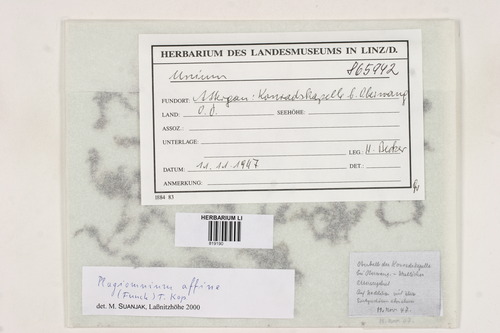 HERBARIUM DES LANDESMUSEUMS IN LINZ/D.
Mnium 865942
FUNDORT: Attergau: Konradskapelle b. Oberwang
LAND: O.Ö. SEEHÖHE:
ASSOZ.:
UNTERLAGE:
LEG.: H. Becker
DATUM: 11.11.1947 DET.:
ANMERKUNG:
1884 83
HERBARIUM LI
819190
Plagiomnium affine
(Funck) T. Kop.
det. M. SUANJAK, Laßnitzhöhe 2000
Oberhalb der Konradskapelle
bei Oberwang
11. Nov. 47.